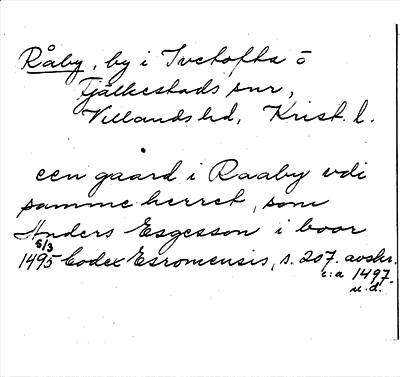 Råby, by i Ivetofta o
Fjälkestads snr,
Villands hd, Krist. l.
een gaard i Raaby vdi
samme herret, som
Anders Esgesson i boor
5/3
1495 Codex Esromensis, s. 207. avskr.
c:a 1497.
u.d.